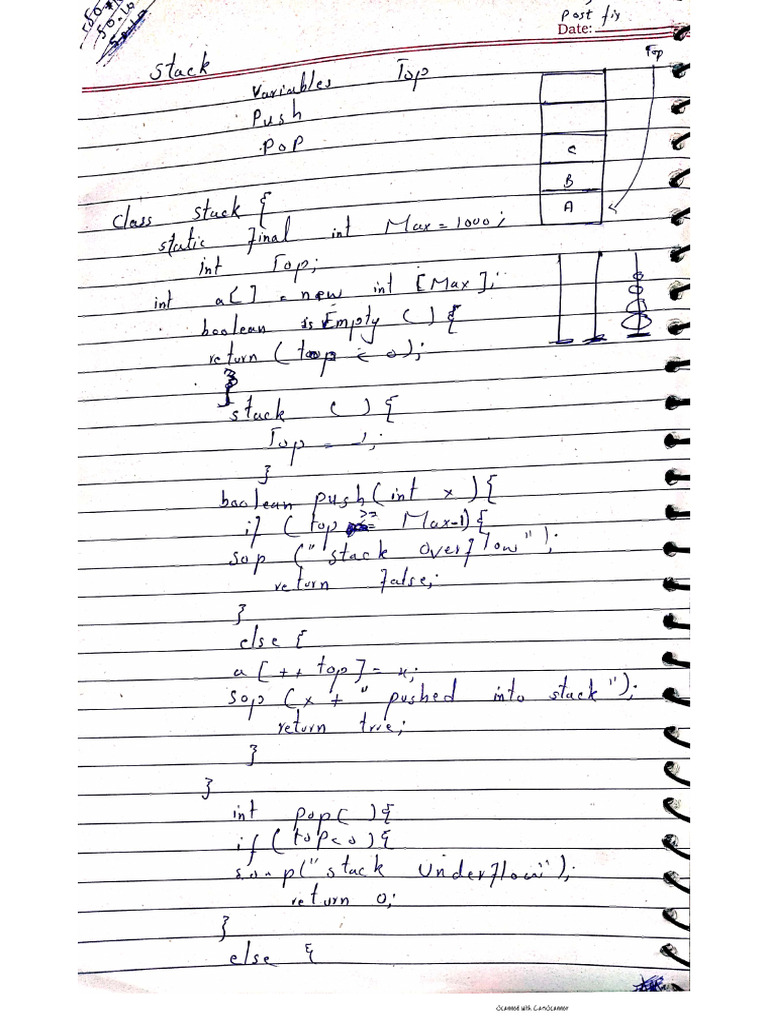 Post fix
Date:
Stack
Top
Variables Top
Push
Pop
C
B
A
class stack {
static final int Max = 1000;
int Top;
int a[ ] = new int [Max];
boolean isEmpty ( ) {
return (top < 0);
}
stack ( ) {
Top = -1;
}
boolean push(int x ) {
if ( top >= Max-1) {
sop ("stack overflow");
return false;
}
else {
a [++ top] = x;
sop (x + " pushed into stack");
return true;
}
}
int pop( ) {
if ( top<0 ) {
s.o.p("stack Underflow");
return 0;
}
else {
Scanned with CamScanner